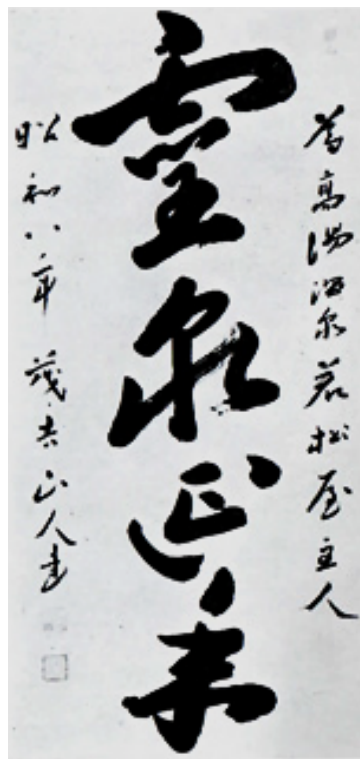 為高湯温泉若松屋主人
靈泉延年
昭和八年 茂吉山人書